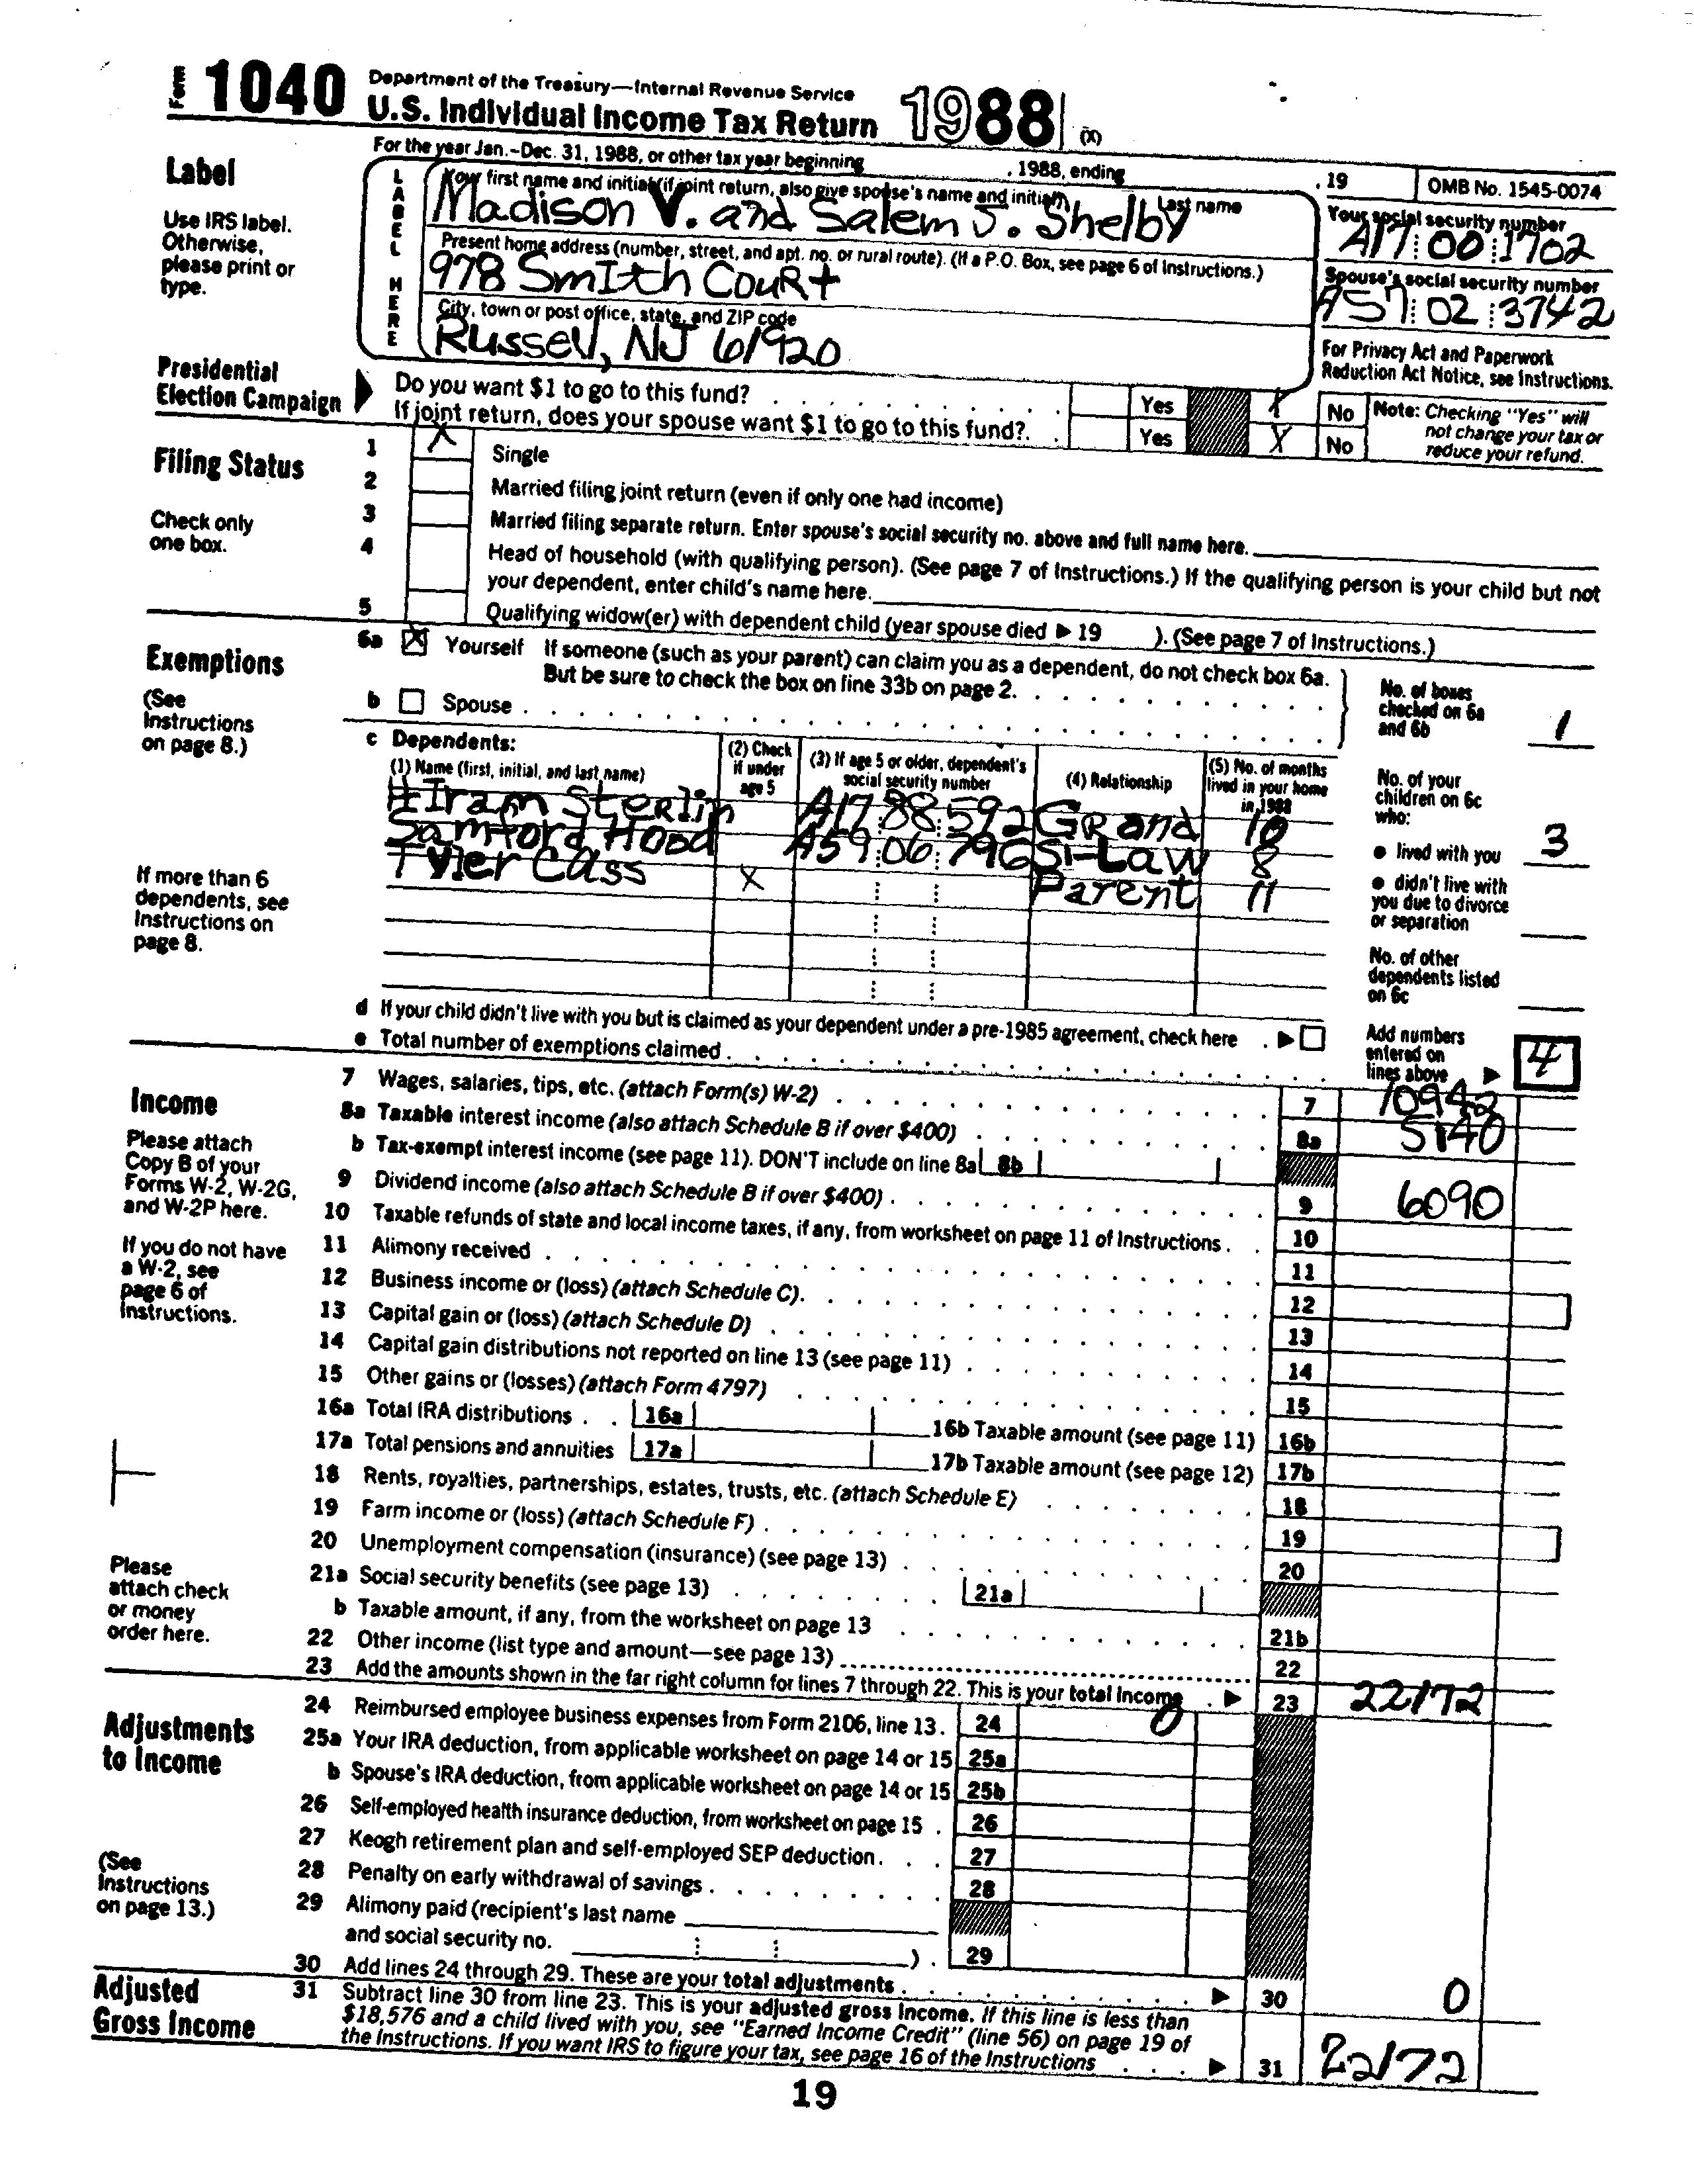 Form 1040 Department of the Treasury—Internal Revenue Service
U.S. Individual Income Tax Return 1988 (X)
For the year Jan.–Dec. 31, 1988, or other tax year beginning , 1988, ending , 19 OMB No. 1545-0074
Label
Use IRS label. Otherwise, please print or type.
LABEL HERE
Your first name and initial (if joint return, also give spouse's name and initial) Last name
Madison V. and Salem J. Shelby
Your social security number
A17 00 1702
Present home address (number, street, and apt. no. or rural route). (If a P.O. Box, see page 6 of Instructions.)
978 SmIth CouRt
Spouse's social security number
A57 02 3742
City, town or post office, state, and ZIP code
Russell, NJ 61920
For Privacy Act and Paperwork Reduction Act Notice, see Instructions.
Presidential Election Campaign
Do you want $1 to go to this fund? Yes X No
If joint return, does your spouse want $1 to go to this fund? Yes X No
Note: Checking "Yes" will not change your tax or reduce your refund.
Filing Status
Check only one box.
1 X Single
2 Married filing joint return (even if only one had income)
3 Married filing separate return. Enter spouse's social security no. above and full name here.
4 Head of household (with qualifying person). (See page 7 of Instructions.) If the qualifying person is your child but not
your dependent, enter child's name here.
5 Qualifying widow(er) with dependent child (year spouse died ▶ 19 ). (See page 7 of Instructions.)
Exemptions
(See Instructions on page 8.)
6a X Yourself If someone (such as your parent) can claim you as a dependent, do not check box 6a.
But be sure to check the box on line 33b on page 2.
b Spouse
No. of boxes checked on 6a and 6b 1
c Dependents:
(1) Name (first, initial, and last name) (2) Check if under age 5 (3) If age 5 or older, dependent's social security number (4) Relationship (5) No. of months lived in your home in 1988
HIram Sterlin A17 88 592 Grand 10
Samford Hood A59 06 796 SI-Law 8
Tyler Cass X Parent 11
If more than 6 dependents, see Instructions on page 8.
No. of your children on 6c who:
● lived with you 3
● didn't live with you due to divorce or separation
No. of other dependents listed on 6c
d If your child didn't live with you but is claimed as your dependent under a pre-1985 agreement, check here ▶
e Total number of exemptions claimed
Add numbers entered on lines above ▶ 4
Income
Please attach Copy B of your Forms W-2, W-2G, and W-2P here.
If you do not have a W-2, see page 6 of Instructions.
Please attach check or money order here.
7 Wages, salaries, tips, etc. (attach Form(s) W-2) 7 10942
8a Taxable interest income (also attach Schedule B if over $400) 8a 5140
b Tax-exempt interest income (see page 11). DON'T include on line 8a 8b
9 Dividend income (also attach Schedule B if over $400) 9 6090
10 Taxable refunds of state and local income taxes, if any, from worksheet on page 11 of Instructions 10
11 Alimony received 11
12 Business income or (loss) (attach Schedule C) 12
13 Capital gain or (loss) (attach Schedule D) 13
14 Capital gain distributions not reported on line 13 (see page 11) 14
15 Other gains or (losses) (attach Form 4797) 15
16a Total IRA distributions 16a 16b Taxable amount (see page 11) 16b
17a Total pensions and annuities 17a 17b Taxable amount (see page 12) 17b
18 Rents, royalties, partnerships, estates, trusts, etc. (attach Schedule E) 18
19 Farm income or (loss) (attach Schedule F) 19
20 Unemployment compensation (insurance) (see page 13) 20
21a Social security benefits (see page 13) 21a
b Taxable amount, if any, from the worksheet on page 13 21b
22 Other income (list type and amount—see page 13) 22
23 Add the amounts shown in the far right column for lines 7 through 22. This is your total income ▶ 23 22172
Adjustments to Income
(See Instructions on page 13.)
24 Reimbursed employee business expenses from Form 2106, line 13. 24 0
25a Your IRA deduction, from applicable worksheet on page 14 or 15 25a
b Spouse's IRA deduction, from applicable worksheet on page 14 or 15 25b
26 Self-employed health insurance deduction, from worksheet on page 15 26
27 Keogh retirement plan and self-employed SEP deduction 27
28 Penalty on early withdrawal of savings 28
29 Alimony paid (recipient's last name
and social security no. ) 29
30 Add lines 24 through 29. These are your total adjustments ▶ 30 0
Adjusted Gross Income
31 Subtract line 30 from line 23. This is your adjusted gross income. If this line is less than
$18,576 and a child lived with you, see "Earned Income Credit" (line 56) on page 19 of
the Instructions. If you want IRS to figure your tax, see page 16 of the Instructions ▶ 31 22172
19